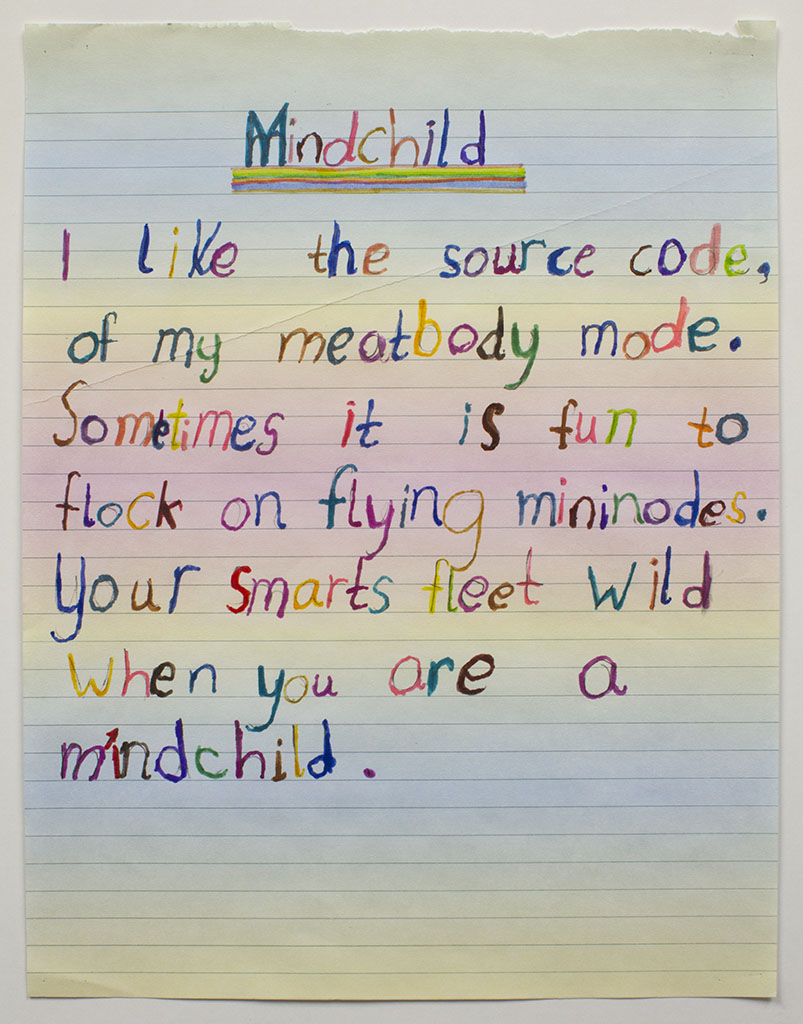 Mindchild
I like the source code,
of my meatbody mode.
Sometimes it is fun to
flock on flying mininodes.
Your smarts fleet wild
when you are a
mindchild.